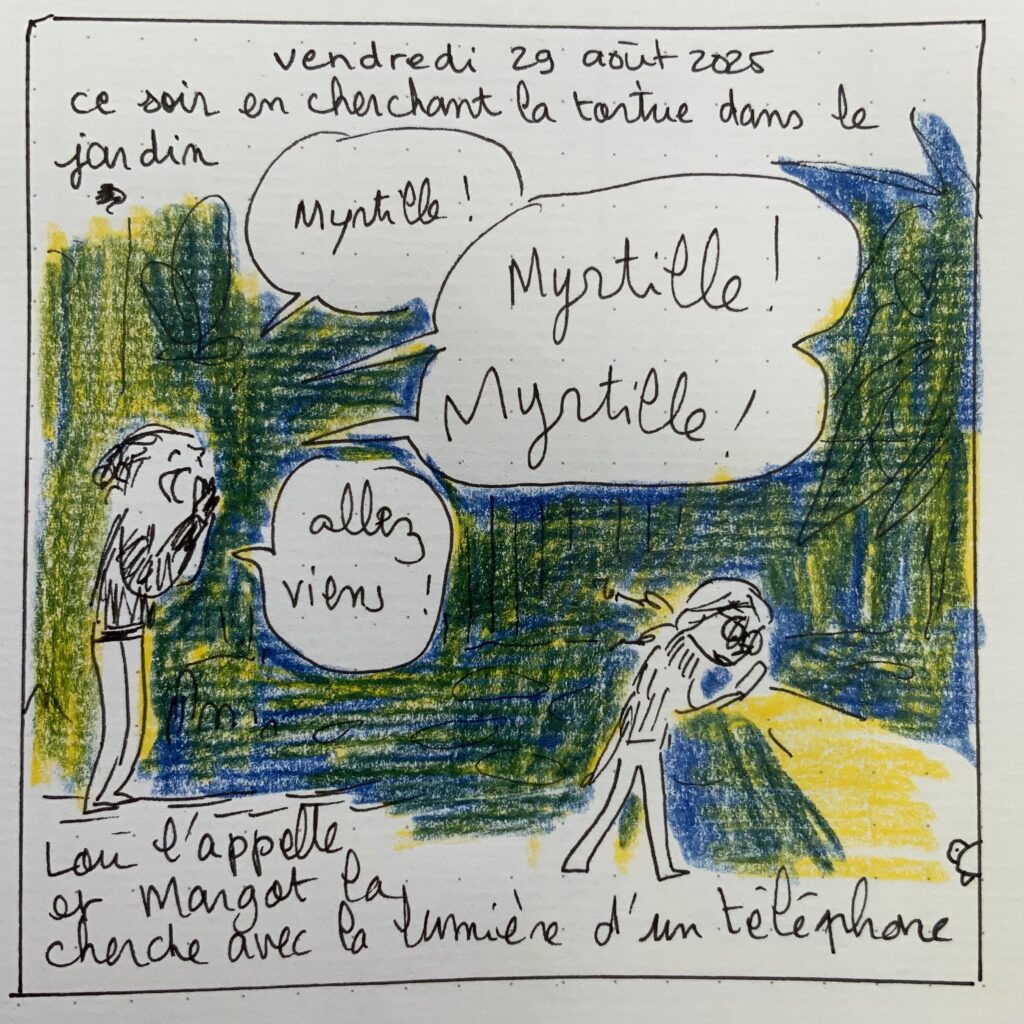 vendredi 29 août 2025
ce soir en cherchant la tortue dans le
jardin
Myrtille !
Myrtille !
Myrtille !
allez
viens !
Lou l'appelle
et Margot la
cherche avec la lumière d'un téléphone